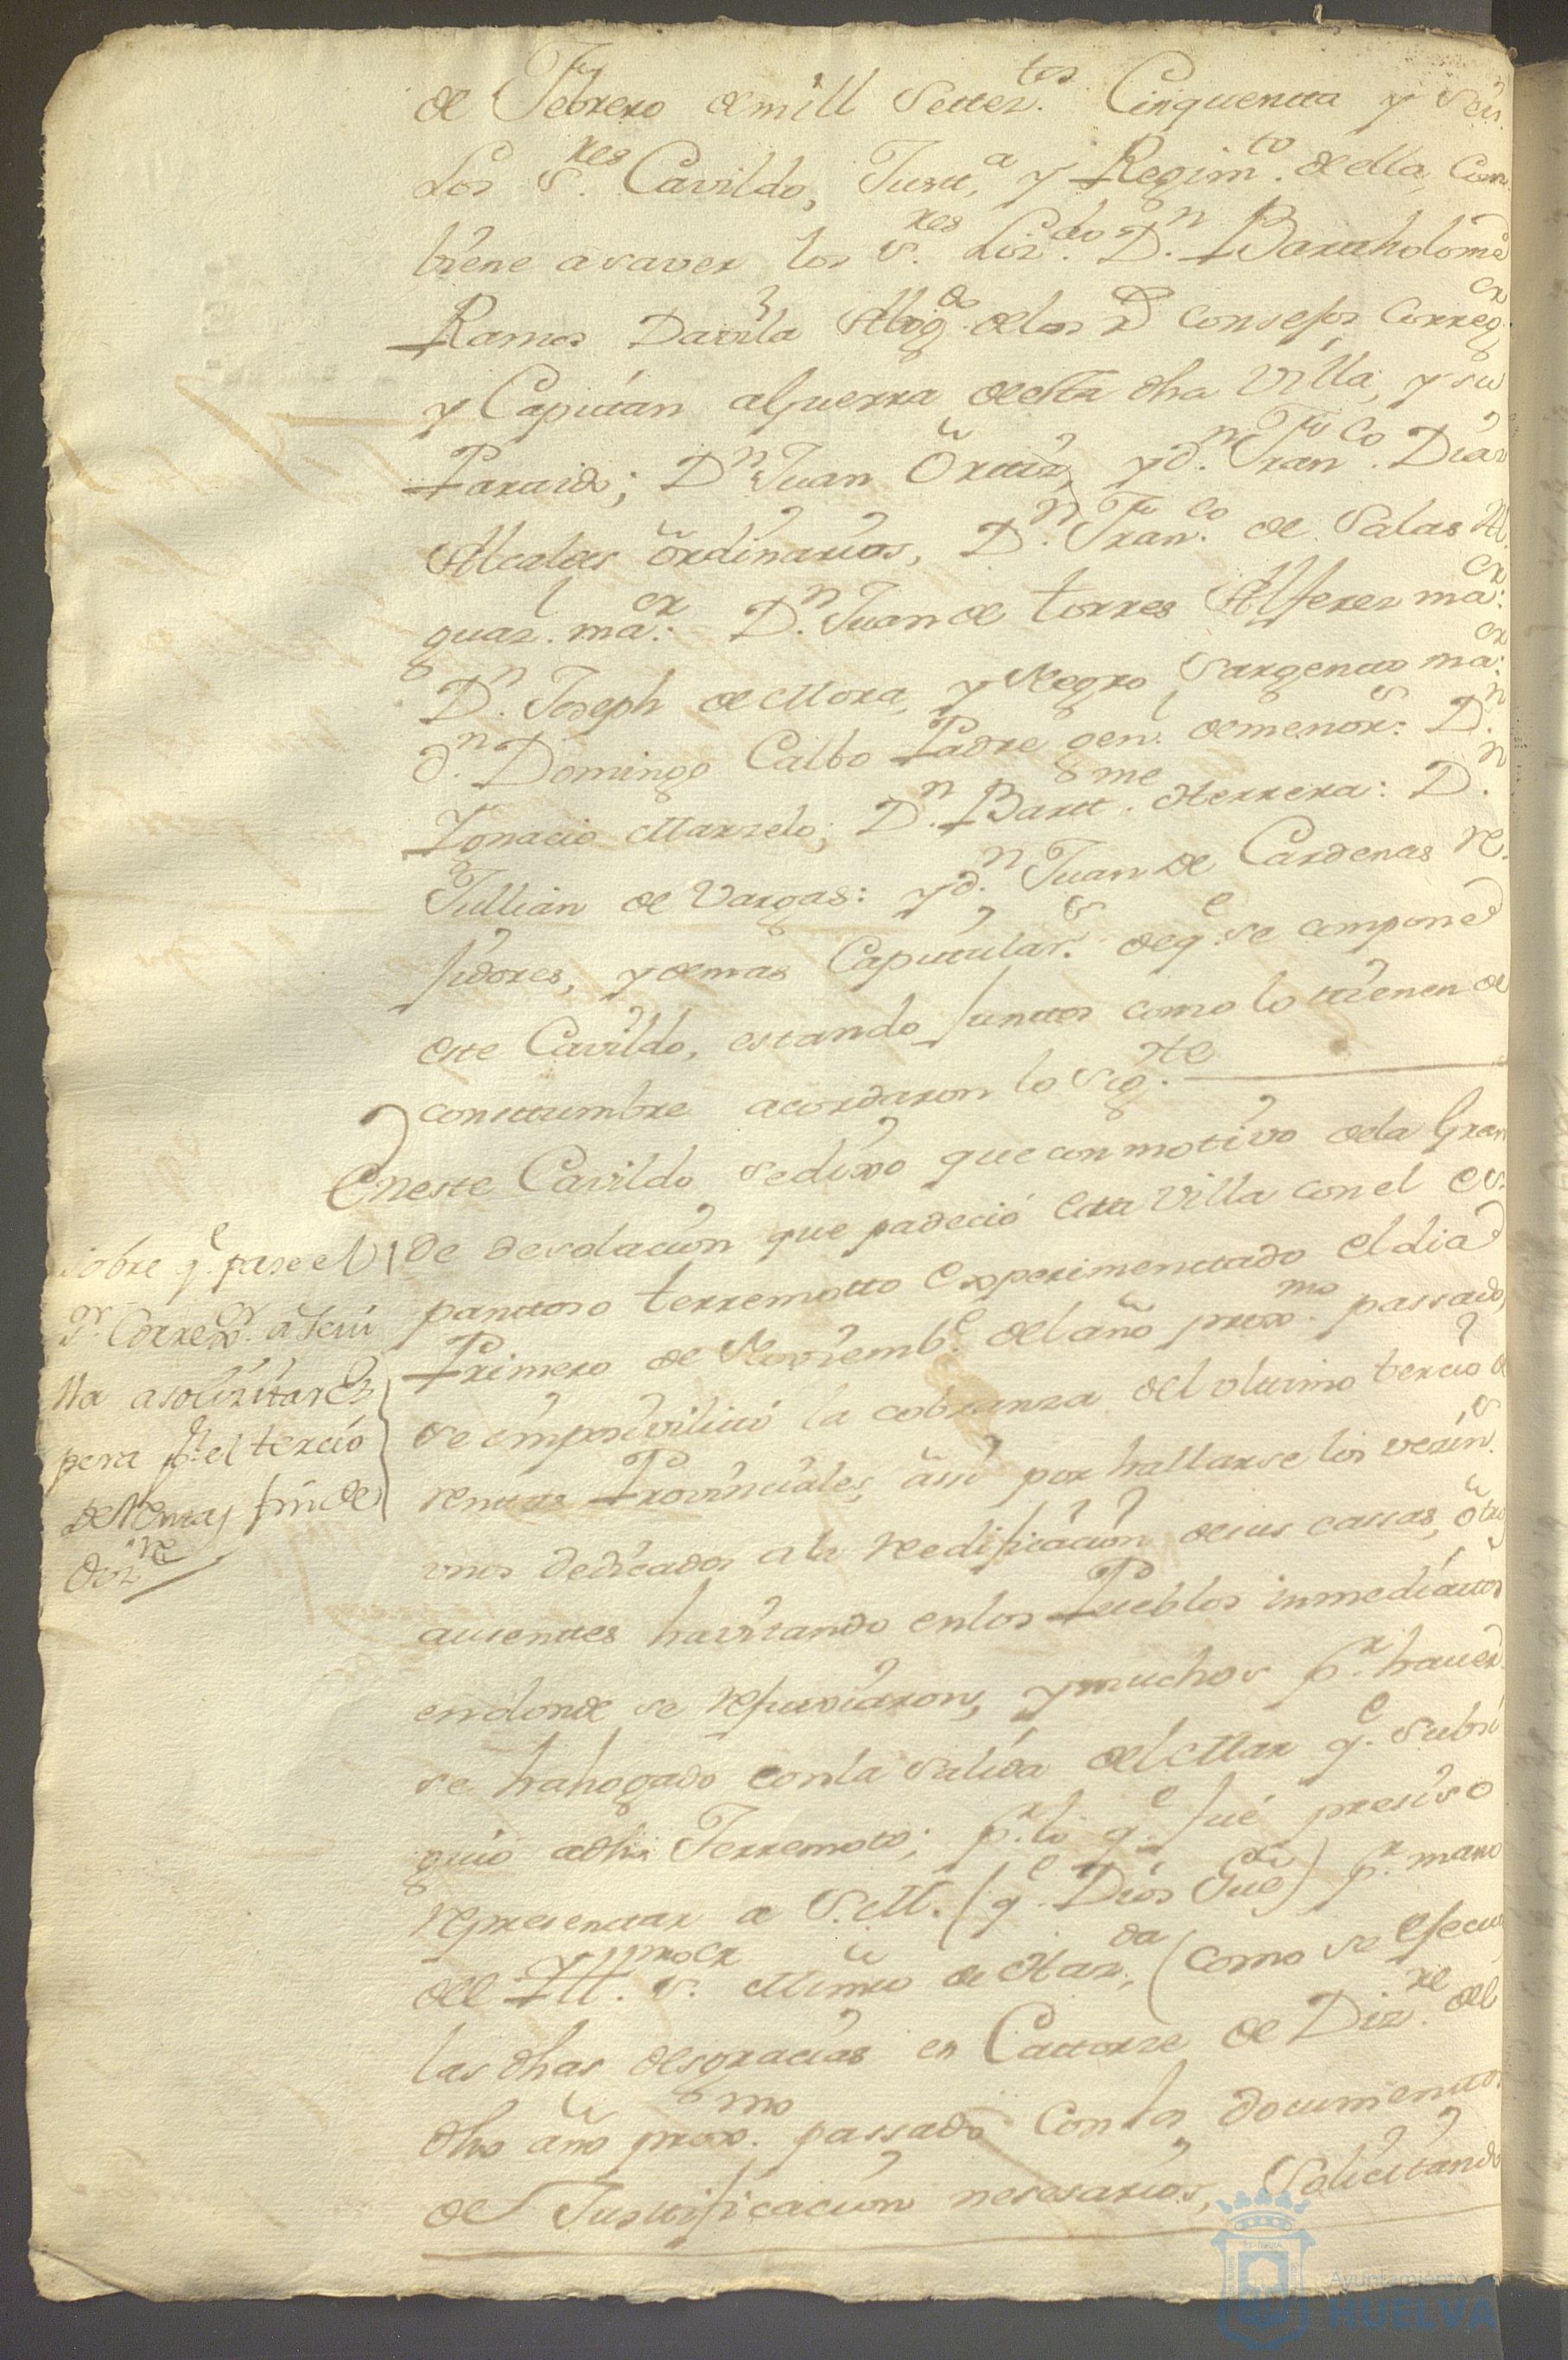 de Febrero de mill Setez.tos Cinquentta y Seis
Los S.res Cavildo, Justt.a y Regim.to de ella, Com
biene a saver los S.res Liz.do D.n Bartholome
Ramos Davila Abog.do de los R.s Consejos Correg.or
y Capitán a Guerra de esta dha Villa, y su
Partido; D.n Juan Orttiz, y d.n Fran.co Diaz
Alcaldes ordinarios, D.n Fran.co de Salas Al
guaz.l ma.or D.n Juan de torres Alferez ma.or
D.n Joseph de Mora, y Negro Sargento ma.or
d.n Domingo Calbo Padre gen.l de menor.s D.n
Ygnacio Marzelo; D.n Bartt.me Herrera: D.n
Jullian de Vargas: y d.n Juan de Cardenas Re
jidores, y demas Capitular.s de q.e se compone
este Cavildo, estando juntos como lo tienen de
consttumbre acordaron lo sig.te
En este Cavildo se dixo que con motivo de la Gran
de desolación que padeció esta Villa con el es
panttoso terremotto experimenttado el dia
Primero de Noviemb.e del año prox.mo passado,
se imposivilitó la cobranza del ultimo tercio de
renttas Provinciales, assi por hallarse los vecin.s
unos dedicados a la reedificación de sus cassas, otros
ausenttes havitando en los Pueblos inmediattos
en donde se refuxiaron, y muchos p.r haver
se hahogado con la salida del Mar q.e subsi
guió a dho Terremoto; p.r lo q.e fué presiso
representtar a S.M. (q.e Dios Gue) p.r mano
del Ill.mo S.or Mintro de Haz.da (como se efecutt
las dhas desgracias en Cattorze de Diz.re del
dho año prox.mo passado con los documenttos
de Justtificación nesesarios, Solicitando
sobre q.e pase el
S.r Correx.or a Sevi
lla a solizitar es
pera p.r el tercio
de Renttas fin de
Diz.re
Ayuntamiento de
HUELVA